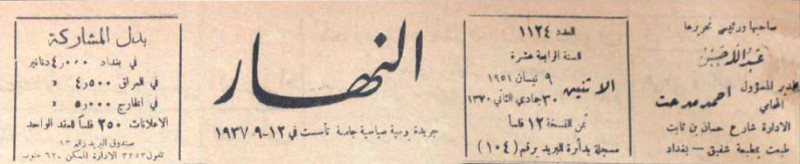 صاحبها ورئيس تحريرها
عبدالله حسين
المدير المسؤول
المحامي
احمد مدحت
الادارة شارع حسان بن ثابت
طبعت بمطبعة شفيق – بغداد
العدد ١١٢٤
السنة الرابعة عشرة
الاثنين
٩ نيسان ١٩٥١
٣٠ جمادي الثاني ١٣٧٠
ثمن النسخة ١٢ فلساً
مسجلة بدائرة البريد برقم (١٠٤)
النهار
جريدة يومية سياسية جامعة تأسست في ١٢–٩–١٩٣٧
بدل المشاركة
في بغداد ٤٫٠٠٠ دنانير
في العراق ٤٫٥٠٠ »
في الخارج ٥٫٠٠٠ »
الاعلانات ٢٥٠ فلساً للعقد الواحد
صندوق البريد رقم ١٣
تلفون ٣٢٥٣ الادارة المسكن ٦٢٠ جنوب